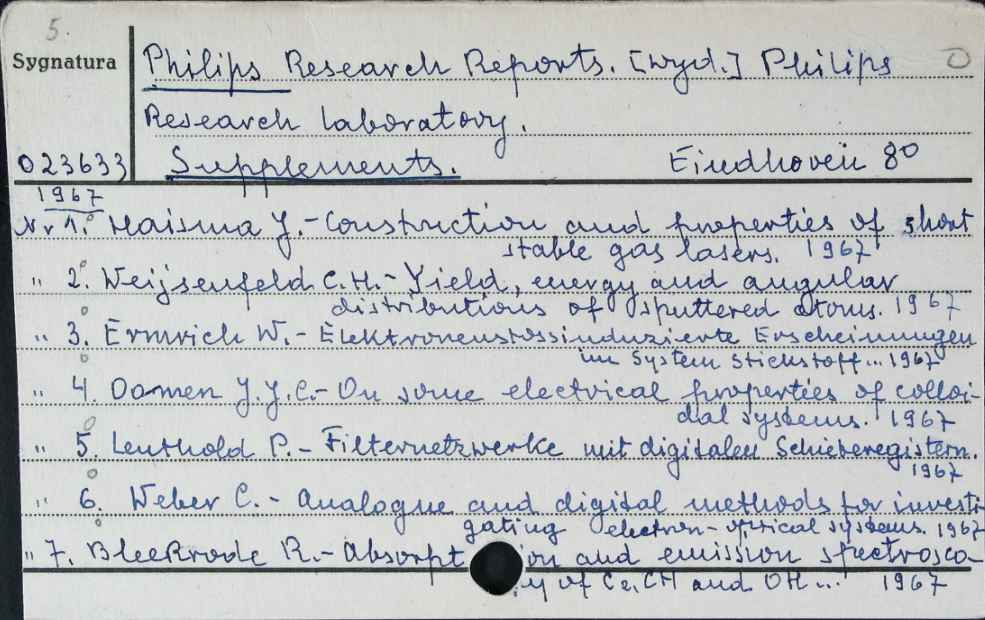 5.
Sygnatura Philips Research Reports. [wyd.] Philips
Research laboratory.
023633 Supplements. Eindhoven 80
1967
Nr 1. Haisma J. - Construction and properties of short
stable gas lasers. 1967
" 2. Weijsenfeld C.H. - Yield, energy and angular
distributions of sputtered atoms. 1967
" 3. Ermrich W. - Elektronenstossinduzierte Erscheinungen
im System Stickstoff... 1967
" 4. Oomen J.J.C. - On some electrical properties of colloi-
dal systems. 1967
" 5. Leuthold P. - Filternetzwerke mit digitalen Schieberegistern.
1967
" 6. Weber C. - Analogue and digital methods for investi-
gating electron-optical systems. 1967
" 7. Bleekrode R. - Absorption and emission spectrosco-
y of C2, CH and OH... 1967